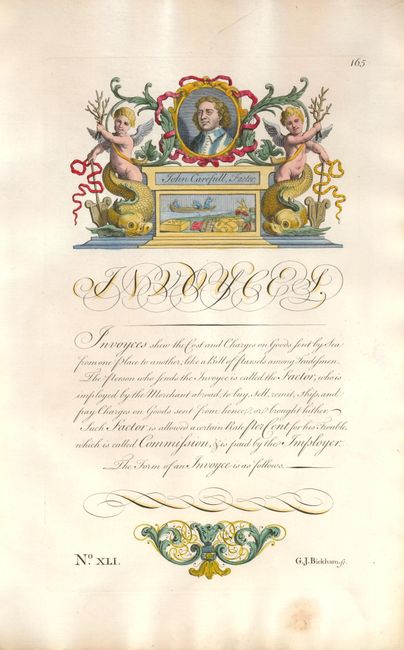 165
John Carefull, Factor.
INVOYCES.
Invoyces shew the Cost and Charges on Goods sent by Sea
from one Place to another, like a Bill of Parcels among Tradesmen.
The Person who sends the Invoyce is called the Factor, who is
imployed by the Merchant abroad, to buy, sell, remit, ship, and
pay Charges on Goods sent from hence, or brought hither.
Such Factor is allowed a certain Rate Per Cent for his Trouble,
which is called Commission, & is paid by the Imployer.
The Form of an Invoyce is as follows.
No. XLI.
G. J. Bickham, sc.